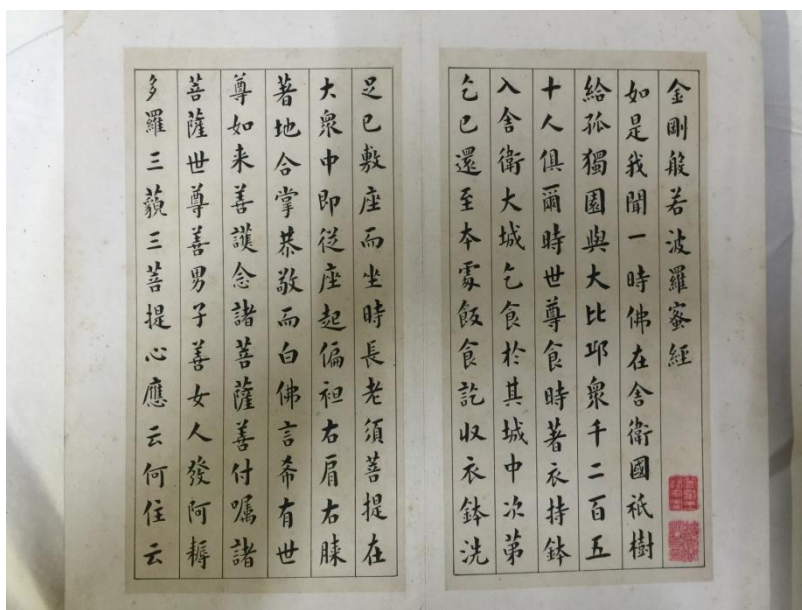 金剛般若波羅蜜經
如是我聞一時佛在舍衛國祇樹
給孤獨園與大比邱衆千二百五
十人俱爾時世尊食時著衣持鉢
入舍衛大城乞食於其城中次第
乞已還至本處飯食訖收衣鉢洗
足已敷座而坐時長老須菩提在
大衆中即從座起偏袒右肩右膝
著地合掌恭敬而白佛言希有世
尊如来善護念諸菩薩善付囑諸
菩薩世尊善男子善女人發阿耨
多羅三藐三菩提心應云何住云